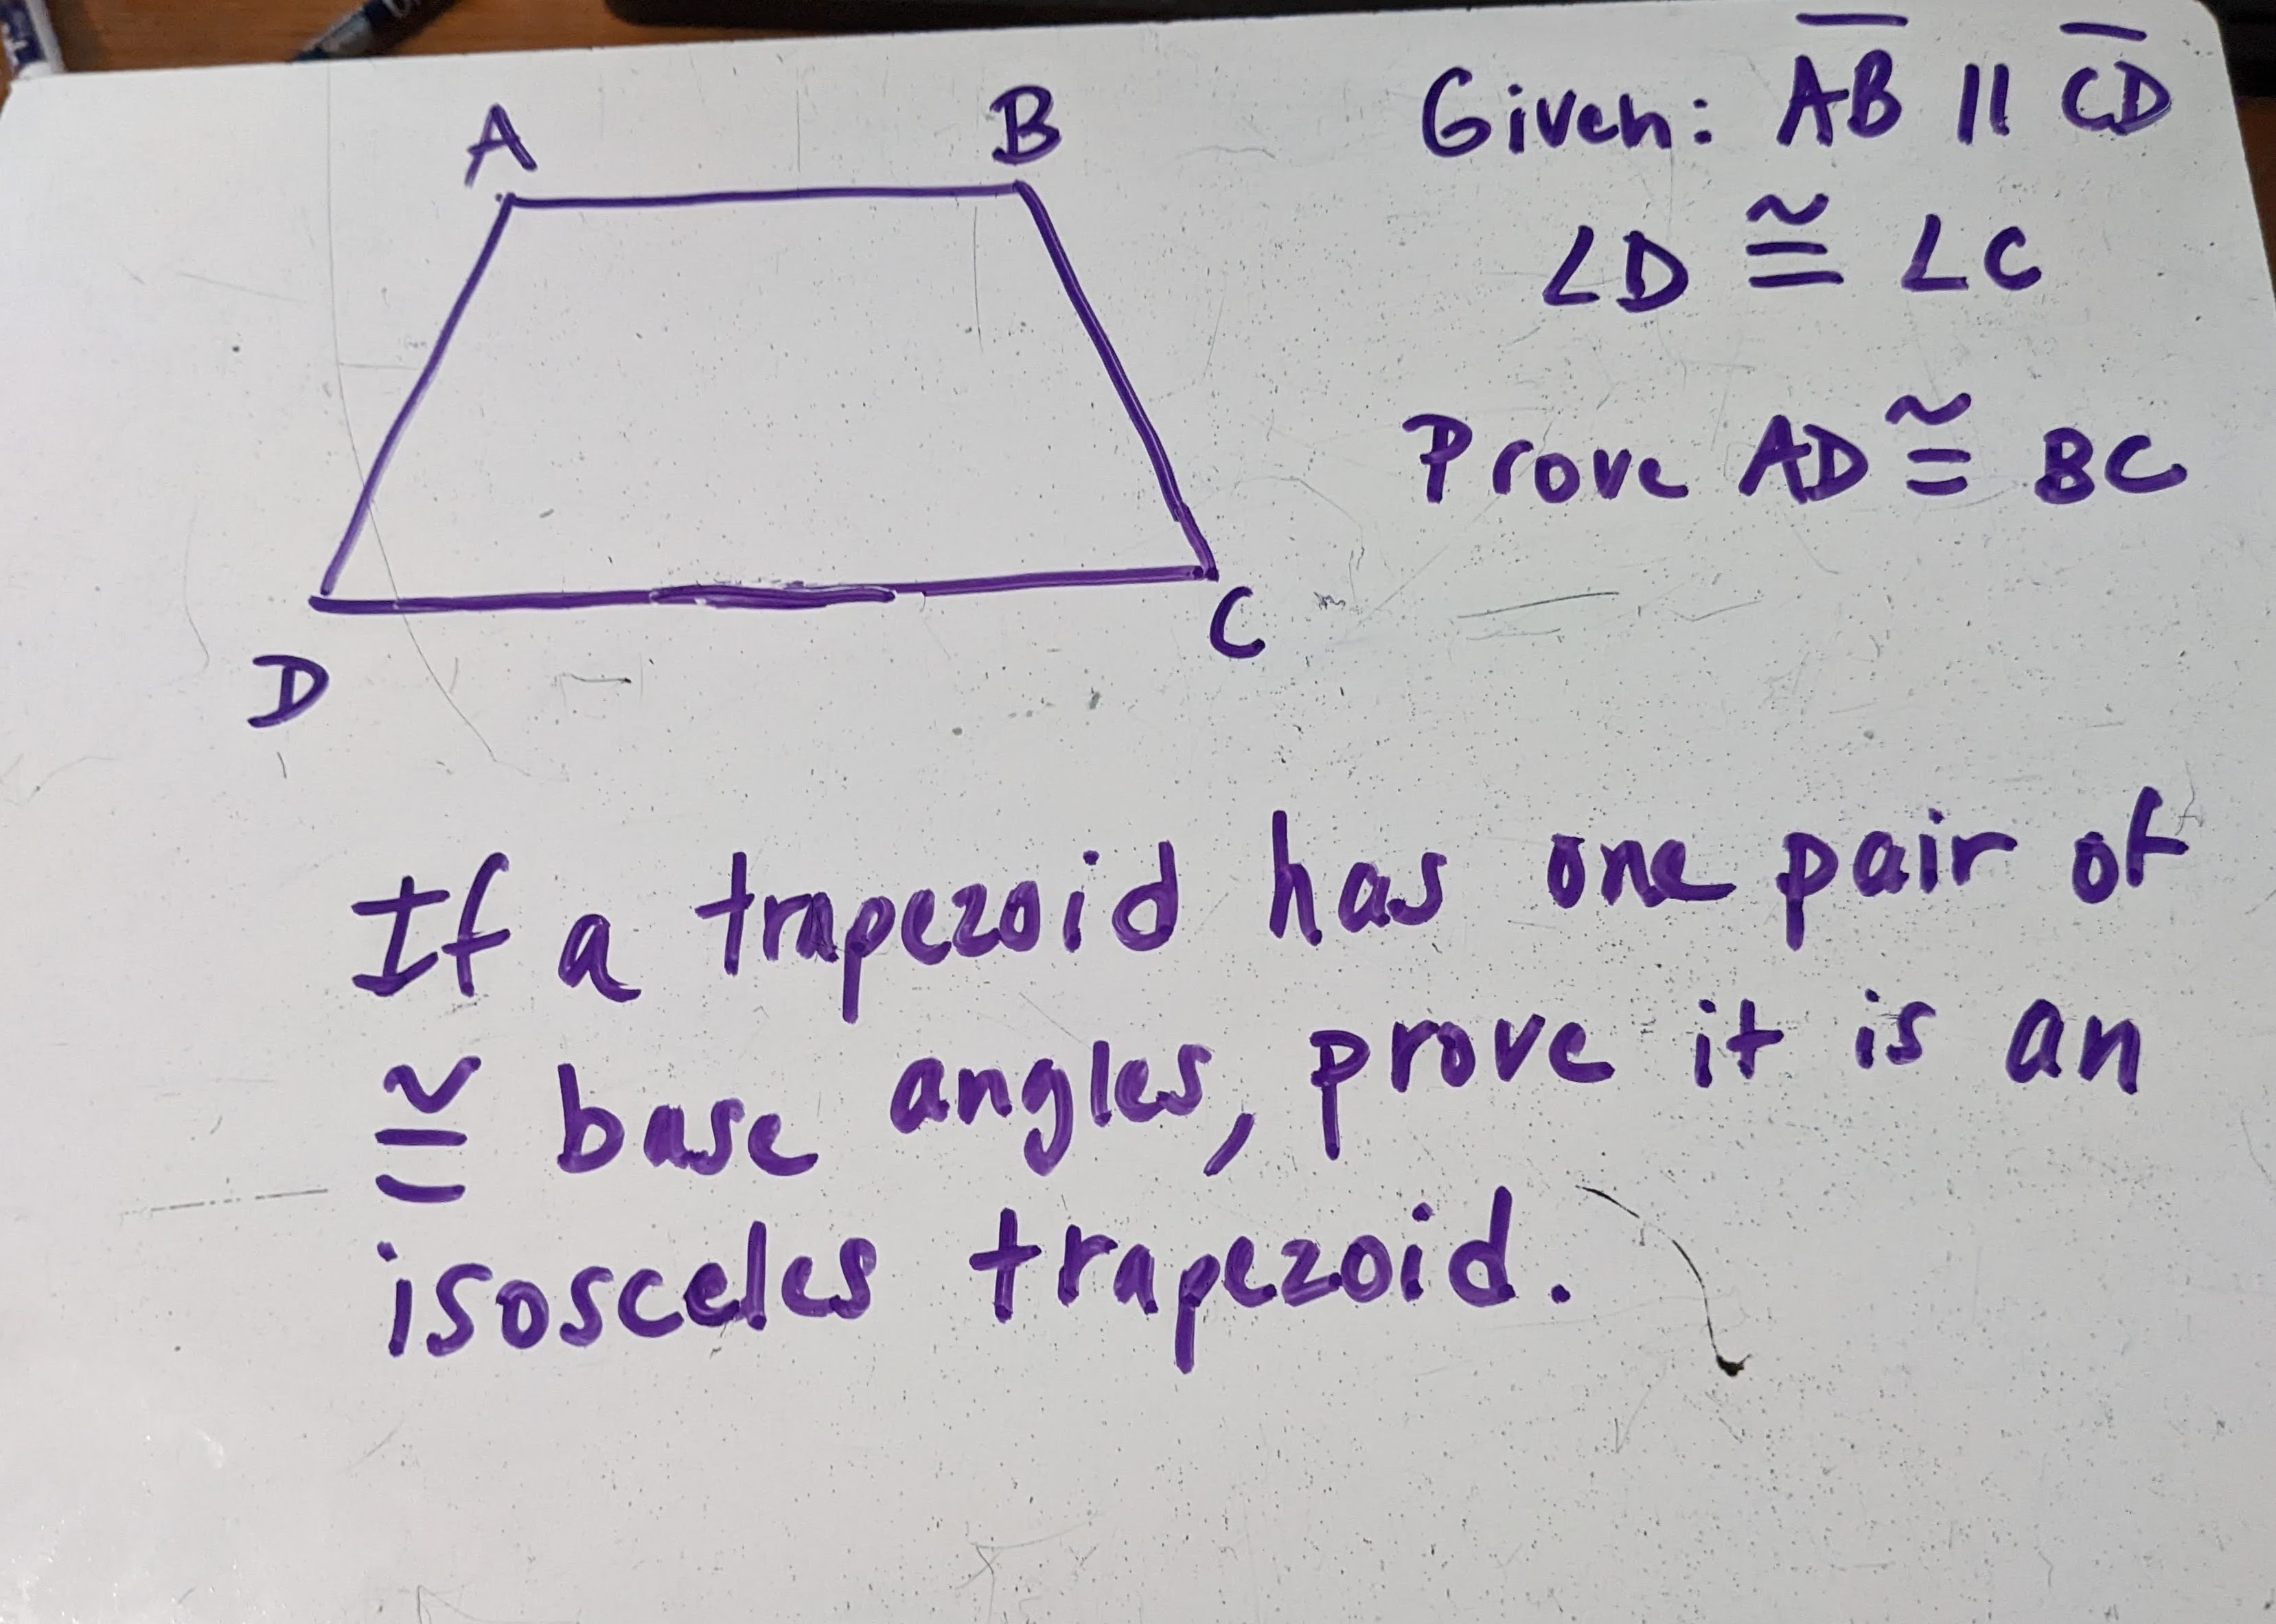 A B
D C
Given: A̅B̅ || C̅D̅
∠D ≅ ∠C
Prove AD ≅ BC
If a trapezoid has one pair of
≅ base angles, prove it is an
isosceles trapezoid.